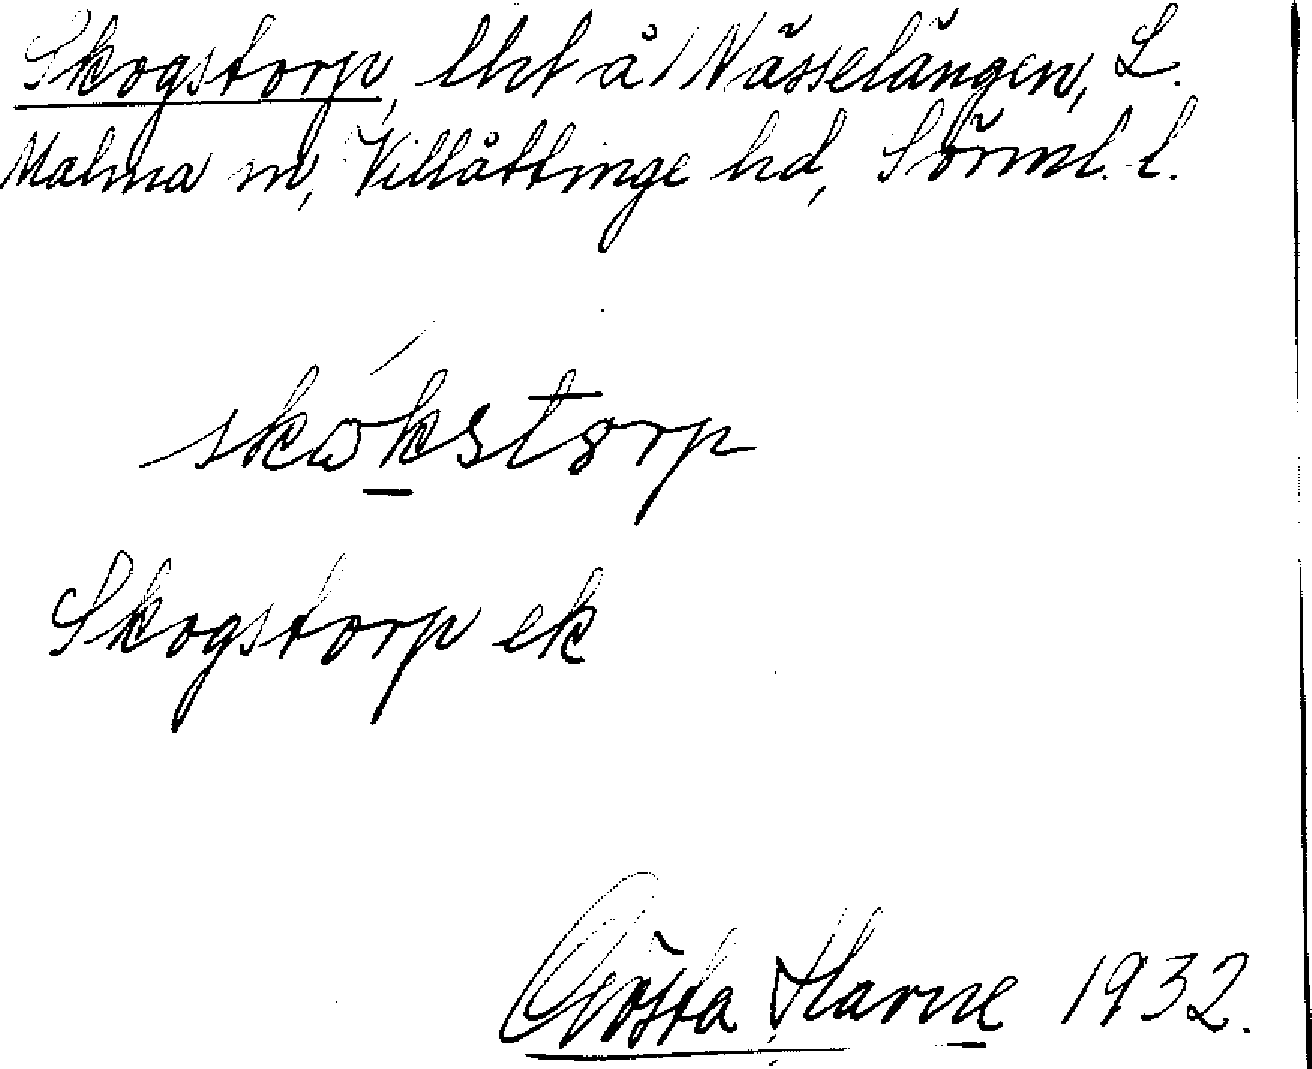 Skogstorp, lht å Nässelängen, L.
Malma sn, Villåttinge hd, Sörml. l.
skώkstorp
Skogstorp ek
Gösta Harne 1932.